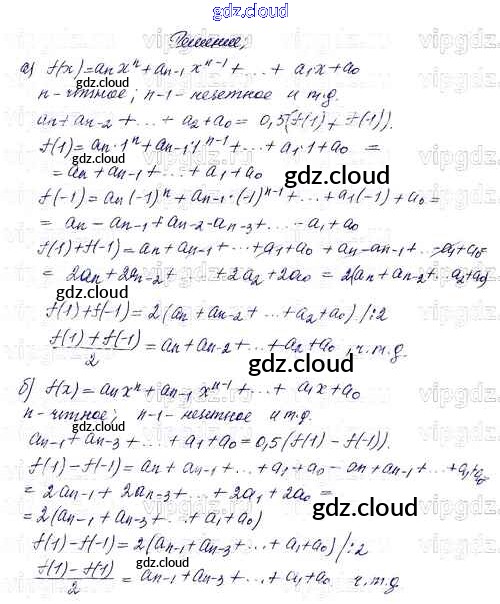 gdz.cloud
Решение:
а) f(x)=aₙxⁿ+aₙ₋₁xⁿ⁻¹+...+a₁x+a₀
n-чётное; n-1-нечетное и т.д.
aₙ+aₙ₋₂+...+a₂+a₀=0,5(f(1)+f(-1)).
f(1)=aₙ·1ⁿ+aₙ₋₁·1ⁿ⁻¹+...+a₁·1+a₀=
=aₙ+aₙ₋₁+...+a₁+a₀
gdz.cloud
f(-1)=aₙ(-1)ⁿ+aₙ₋₁·(-1)ⁿ⁻¹+...+a₁(-1)+a₀=
=aₙ-aₙ₋₁+aₙ₋₂-aₙ₋₃+...-a₁+a₀
f(1)+f(-1)=aₙ+aₙ₋₁+...+a₁+a₀+aₙ-aₙ₋₁+...-a₁+a₀=
=2aₙ+2aₙ₋₂+...+2a₂+2a₀=2(aₙ+aₙ₋₂+...a₂+a₀)
gdz.cloud
f(1)+f(-1)=2(aₙ+aₙ₋₂+...+a₂+a₀)/:2
(f(1)+f(-1))/2=aₙ+aₙ₋₂+...+a₂+a₀, ч.т.д.
gdz.cloud
б) f(x)=aₙxⁿ+aₙ₋₁xⁿ⁻¹+...+a₁x+a₀
n-чтное; n-1-нечетное и т.д.
gdz.cloud
aₙ₋₁+aₙ₋₃+...+a₁+a₀=0,5(f(1)-f(-1)).
f(1)-f(-1)=aₙ+aₙ₋₁+...+a₁+a₀-aₙ+aₙ₋₁+...+a₁+a₀
=2aₙ₋₁+2aₙ₋₃+...+2a₁+2a₀=
=2(aₙ₋₁+aₙ₋₃+...+a₁+a₀)
gdz.cloud
f(1)-f(-1)=2(aₙ₋₁+aₙ₋₃+...+a₁+a₀)/:2
(f(1)-f(1))/2=aₙ₋₁+aₙ₋₃+...+a₁+a₀ ч.т.д.
gdz.cloud